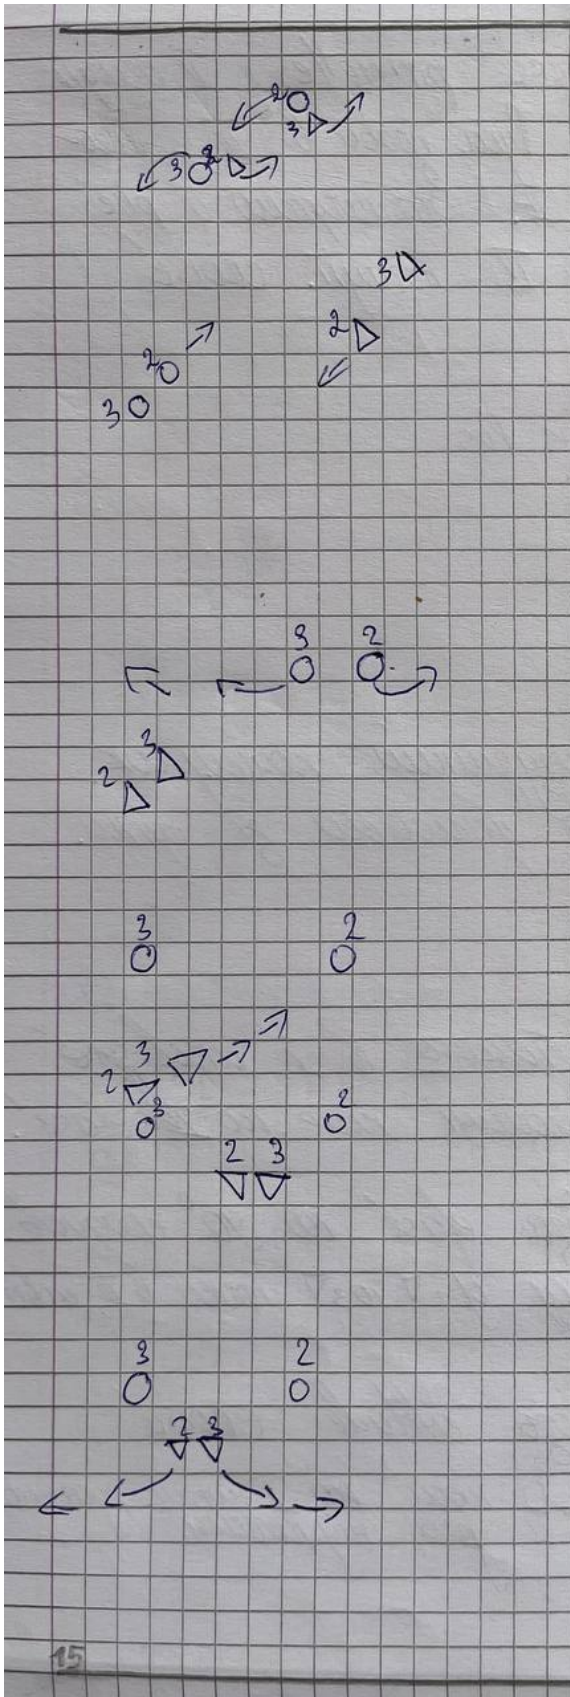 2
3
3 2
3
2
2
3
3 2
3
2
3 2
3
2
3 2
2 3
3 2
2 3
15